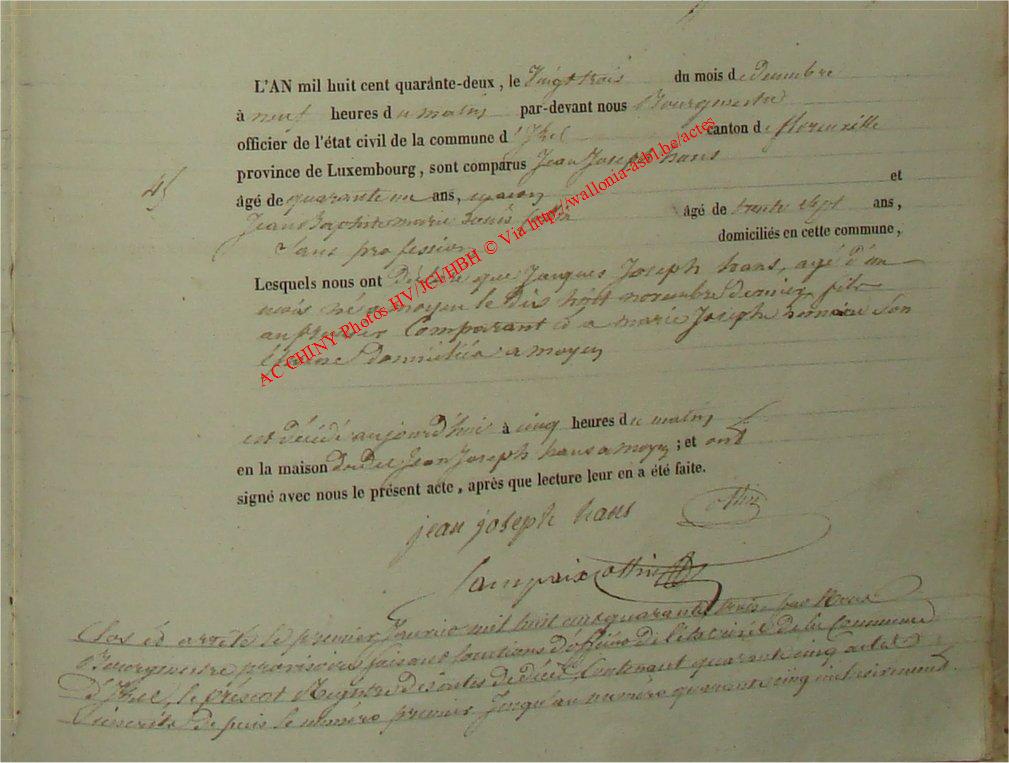 L'AN mil huit cent quarante-deux, le Vingt trois du mois de décembre
à neuf heures du matin par-devant nous Bourgmestre
officier de l'état civil de la commune d'Izel canton de florenville
province de Luxembourg, sont comparus Jean Joseph hans
45
âgé de quarante un ans, maçon et
Jean Baptiste marie Louis âgé de trente sept ans,
Sans profession domiciliés en cette commune,
Lesquels nous ont Déclaré que Jacques Joseph hans, agé d'un
mois né a moyen le dix huit novembre dernier fils
au premier Comparant et a marie Joseph son
Epouse domiciliés a moyen
est décédé aujourd'hui à cinq heures du matin
en la maison dudit Jean Joseph hans a moyen ; et ont
signé avec nous le présent acte, après que lecture leur en a été faite.
jean joseph hans
othin
Lampaix othin
Clos et arreté le premier Janvier mil huit cent quarante trois par Nous
Bourgmestre provisoire faisant fonctions d'officier de l'état civil de la Commune
d'Izel, le présent Registre des actes de décès Contenant quarante cinq actes
inscrits depuis le numéro premier Jusqu'au numéro quarante cinq inclusivement
AC CHINY Photos HV/JCI/HBH © Via http://wallonia-asbl.be/actes